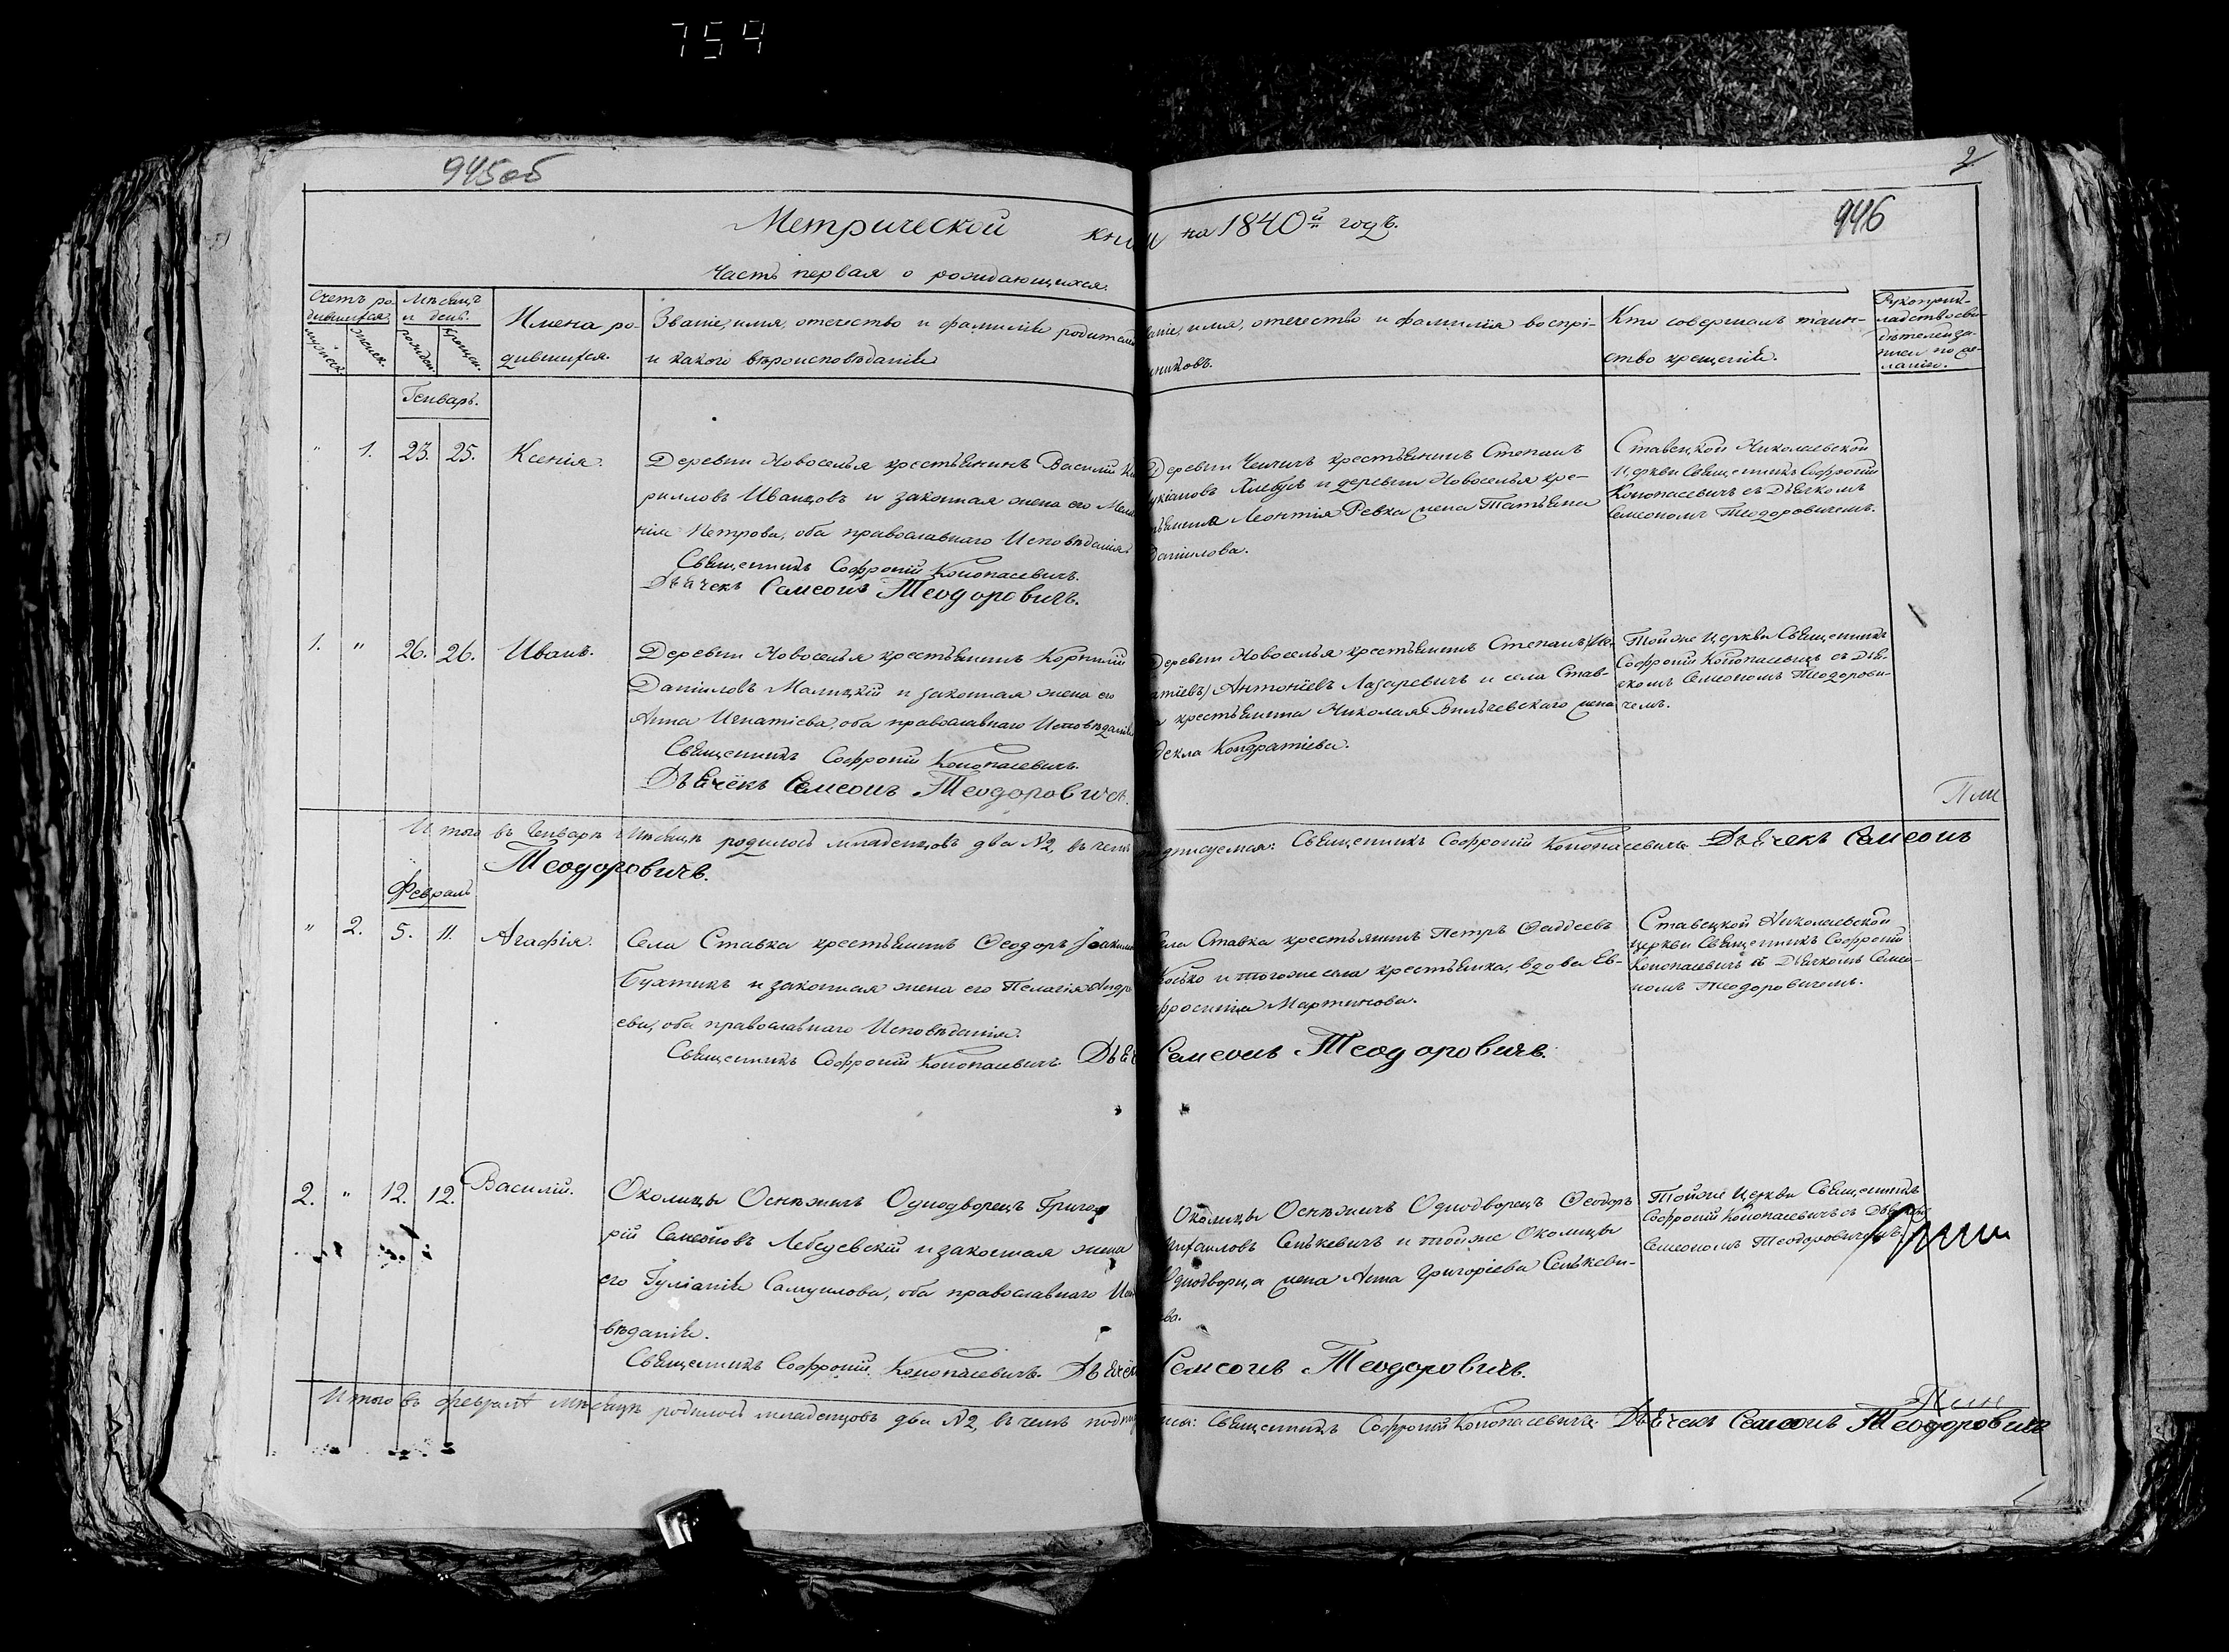 759
945об
2
946
Метрической книги на 1840й годъ.
Часть первая о рождающихся.
Счетъ ро-
дившихся.
мужеск.
женск.
Мѣсяцъ
и день.
рожден.
крещен.
Имена ро-
дившихся.
Званіе, имя, отечество и фамилія родителей
и какого вѣроисповѣданія
Званіе, имя, отечество и фамилія воспрі-
емниковъ.
Кто совершалъ таин-
ство крещенія.
Рукоприк-
ладство сви-
дѣтелей за-
писи по же-
ланію.
Генварь.
" 1. 23. 25. Ксенія.
Деревни Новоселья крестьянинъ Василій Ки
рилловъ Иванцовъ и законная жена его Мела
нія Петрова, оба православнаго Исповѣданія.
Священникъ Софроній Конопасевичъ.
Дьячекъ Самсонъ Теодоровичъ.
Деревни крестьянинъ Степанъ
Лукіановъ и деревни Новоселья кре-
стьянина Леонтія Ревка жена Татьяна
Данилова.
Ставецкой Николаевской
Церкви Священникъ Софроній
Конопасевичъ съ Дьячкомъ
Самсономъ Теодоровичемъ.
1. " 26. 26. Иванъ.
Деревни Новоселья крестьянинъ Корнилій
Даніиловъ Малицкій и законная жена его
Анна Игнатіева, оба православнаго Исповѣданія
Священникъ Софроній Конопасевичъ.
Дьячёкъ Самсонъ Теодоровичъ.
Деревни Новоселья крестьянинъ Степанъ
Антоніевъ Лазаревичъ и села Став-
ка крестьянина Николая жена
Ѳекла Кондратіева.
Тойже Церкви Священникъ
Софроній Конопасевичъ съ Дья-
чкомъ Самсономъ Теодорови-
чемъ.
Итого въ Генварѣ Мѣсяцѣ родилось младенцовъ два №2, въ чемъ подписуемся: Священникъ Софроній Конопасевичъ. Дьячекъ Самсонъ
Теодоровичъ.
Февраль
" 2. 5. 11. Агафія.
Села Ставка крестьянинъ Ѳеодоръ Іоакимовъ
Бухтикъ и законная жена его Пелагія Андре
ева, оба православнаго Исповѣданія.
Священникъ Софроній Конопасевичъ. Дьячекъ Самсонъ Теодоровичъ.
Села Ставка крестьянинъ Петръ Ѳаддеевъ
и тогоже села крестьянка, вдова Ев-
фросинія Мартинова.
Ставецкой Николаевской
Церкви Священникъ Софроній
Конопасевичъ съ Дьячкомъ Самсо-
номъ Теодоровичемъ.
2. " 12. 12. Василій.
Околицы Оснѣжичъ Однодворецъ Григо
рій Самсоновъ Лебедевскій и законная жена
его Іуліанія Самуилова, оба православнаго Испо
вѣданія.
Священникъ Софроній Конопасевичъ. Дьячёкъ Самсонъ Теодоровичъ.
Околицы Оснѣжичъ Однодворецъ Ѳеодоръ
Михаиловъ Сенькевичъ и тойже Околицы
Однодворца жена Анна Григоріева Сенькеви-
чева.
Тойже Церкви Священникъ
Софроній Конопасевичъ съ Дьячкомъ
Самсономъ Теодоровичемъ.
Итого въ Февралѣ Мѣсяцѣ родилось младенцовъ два №2, въ чемъ подписуемся: Священникъ Софроній Конопасевичъ. Дьячекъ Самсонъ Теодоровичъ